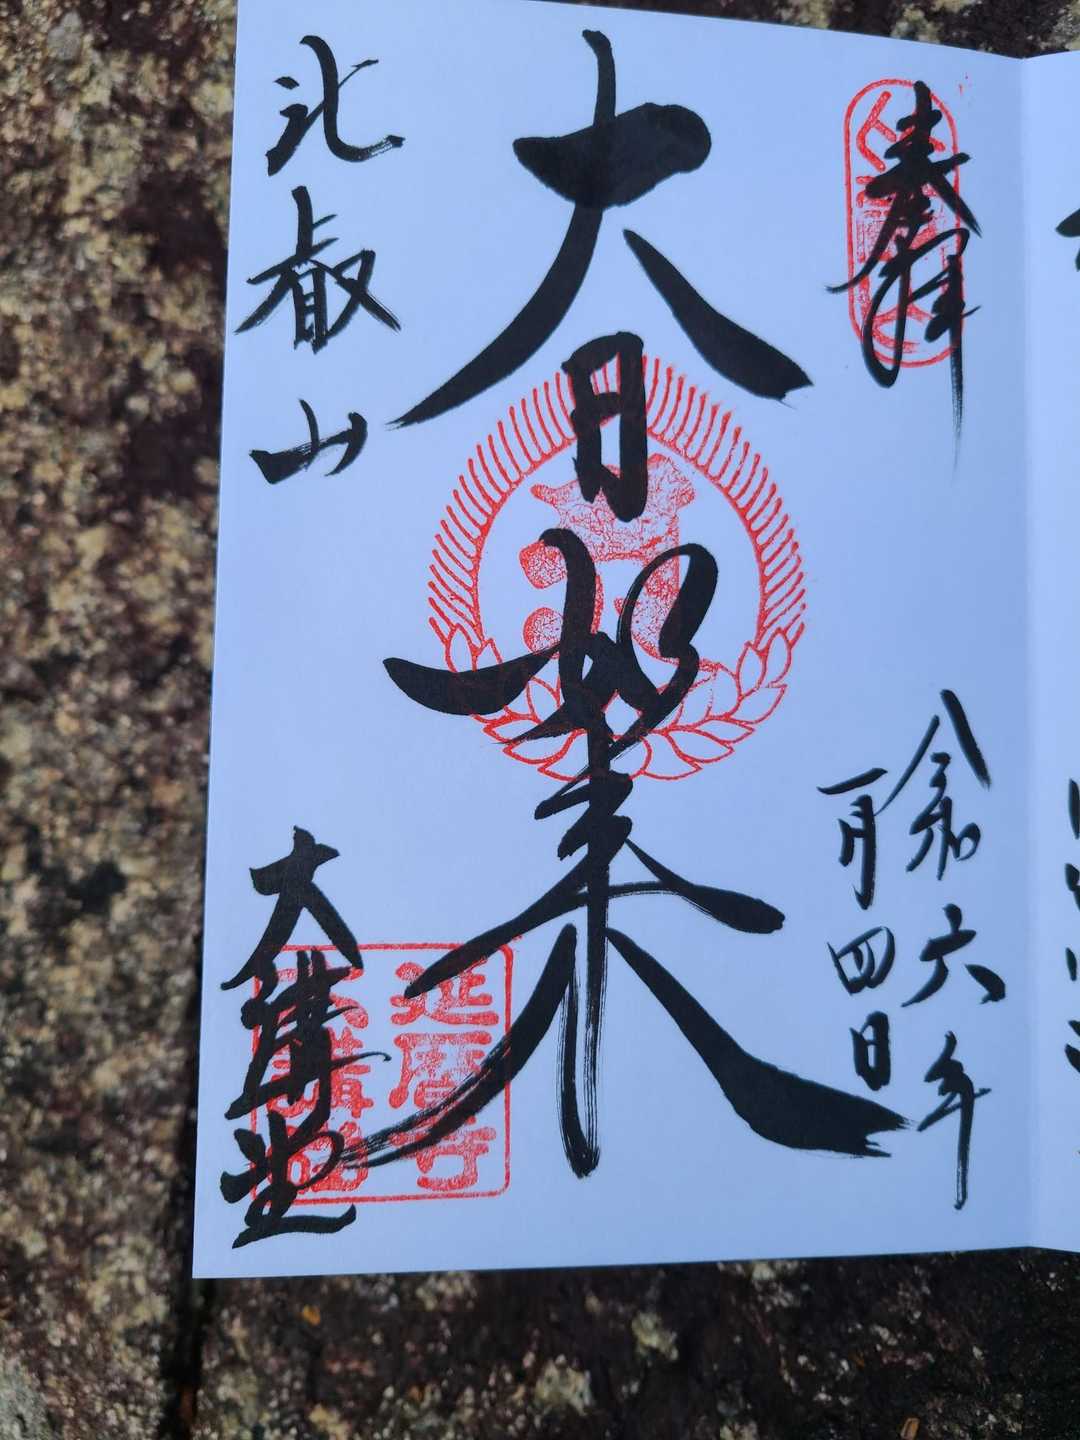 奉拝
令和六年
一月四日
大日如来
北叡山
大講堂
延暦寺
大講堂